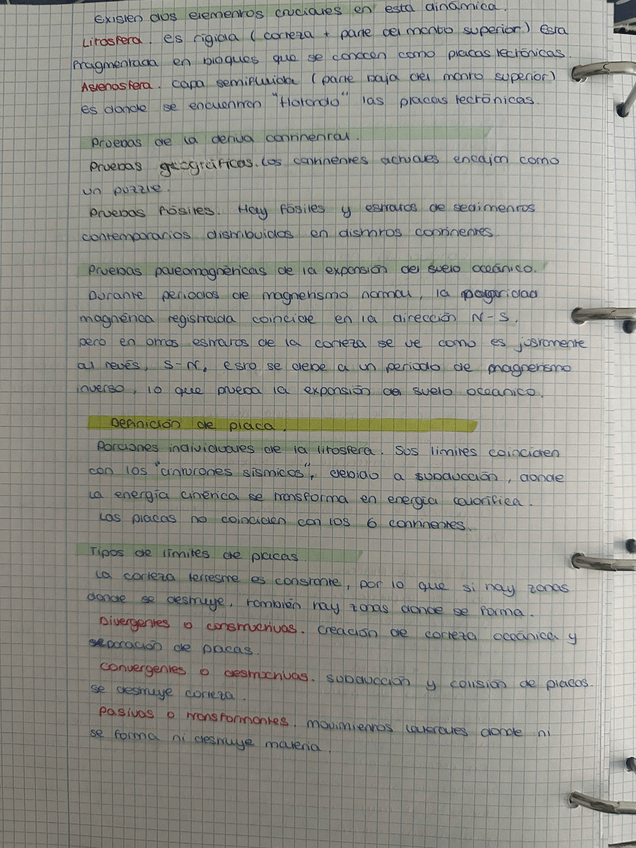 Existen dos elementos cruciales en esta dinámica.
Litosfera. es rígida (corteza + parte del manto superior) Esta
fragmentada en bloques que se conocen como placas tectónicas.
Astenosfera. capa semifluida (parte baja del manto superior)
es donde se encuentran "flotando" las placas tectónicas.
Pruebas de la deriva continental.
Pruebas geográficas. Los continentes actuales encajan como
un puzzle.
Pruebas fósiles. Hay fósiles y estratos de sedimentos
contemporarios distribuidos en distintos continentes
Pruebas paleomagnéticas de la expansión del suelo oceánico.
Durante periodos de magnetismo normal, la polaridad
magnética registrada coincide en la dirección N-S.
pero en otros estratos de la corteza se ve como es justamente
al revés, S-N, esto se debe a un periodo de magnetismo
inverso, lo que prueba la expansión de suelo oceanico.
Definición de placa.
Porciones individuales de la litosfera. Sus límites coinciden
con los "cinturones sísmicos", debido a subducción, donde
la energía cinética se transforma en energía calorífica.
Las placas no coinciden con los 6 continentes.
Tipos de límites de placas
La corteza terrestre es constante, por lo que si hay zonas
donde se destruye, también hay zonas donde se forma.
Divergentes o constructivas. creación de corteza oceánica y
separación de placas.
Convergentes o destructivas. subducción y colisión de placas.
se destruye corteza.
Pasivos o transformantes. movimientos laterales donde ni
se forma ni destruye materia.